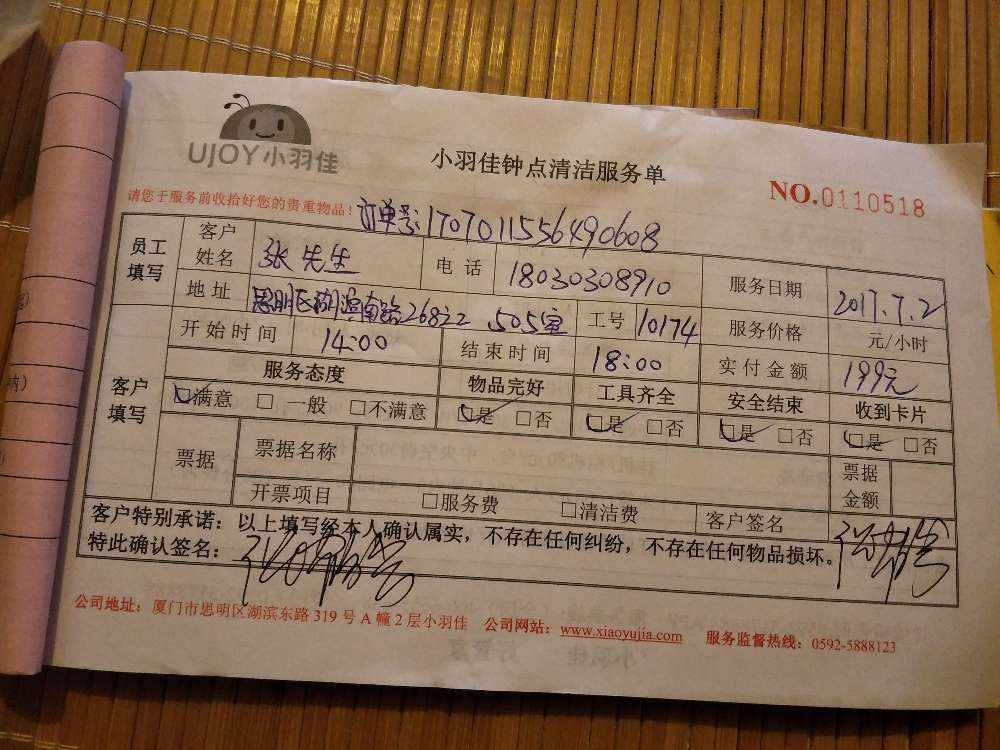 UJOY小羽佳
小羽佳钟点清洁服务单
NO.0110518
请您于服务前收拾好您的贵重物品！
订单号:1707011556490608
员工填写 客户姓名 张先生 电话 18030308910 服务日期 2017.7.2
地址 思明区湖滨南路26822 505室 工号 10174 服务价格 元/小时
客户填写 开始时间 14:00 结束时间 18:00 实付金额 199元
服务态度 物品完好 工具齐全 安全结束 收到卡片
满意 □ 一般 □不满意 是 □否 是 □否 是 □否 是 □否
票据 票据名称 票据金额
开票项目 □服务费 □清洁费 客户签名
客户特别承诺：以上填写经本人确认属实，不存在任何纠纷，不存在任何物品损坏。
特此确认签名：
公司地址：厦门市思明区湖滨东路319号A幢2层小羽佳 公司网站：www.xiaoyujia.com 服务监督热线：0592-5888123